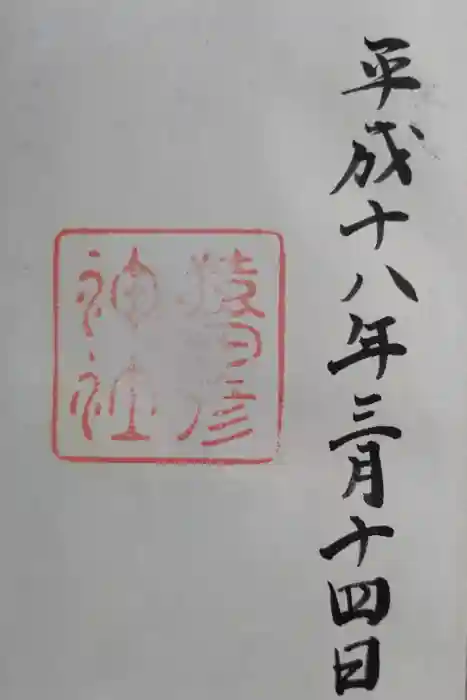 平成十八年三月十四日
猿田彦
神社